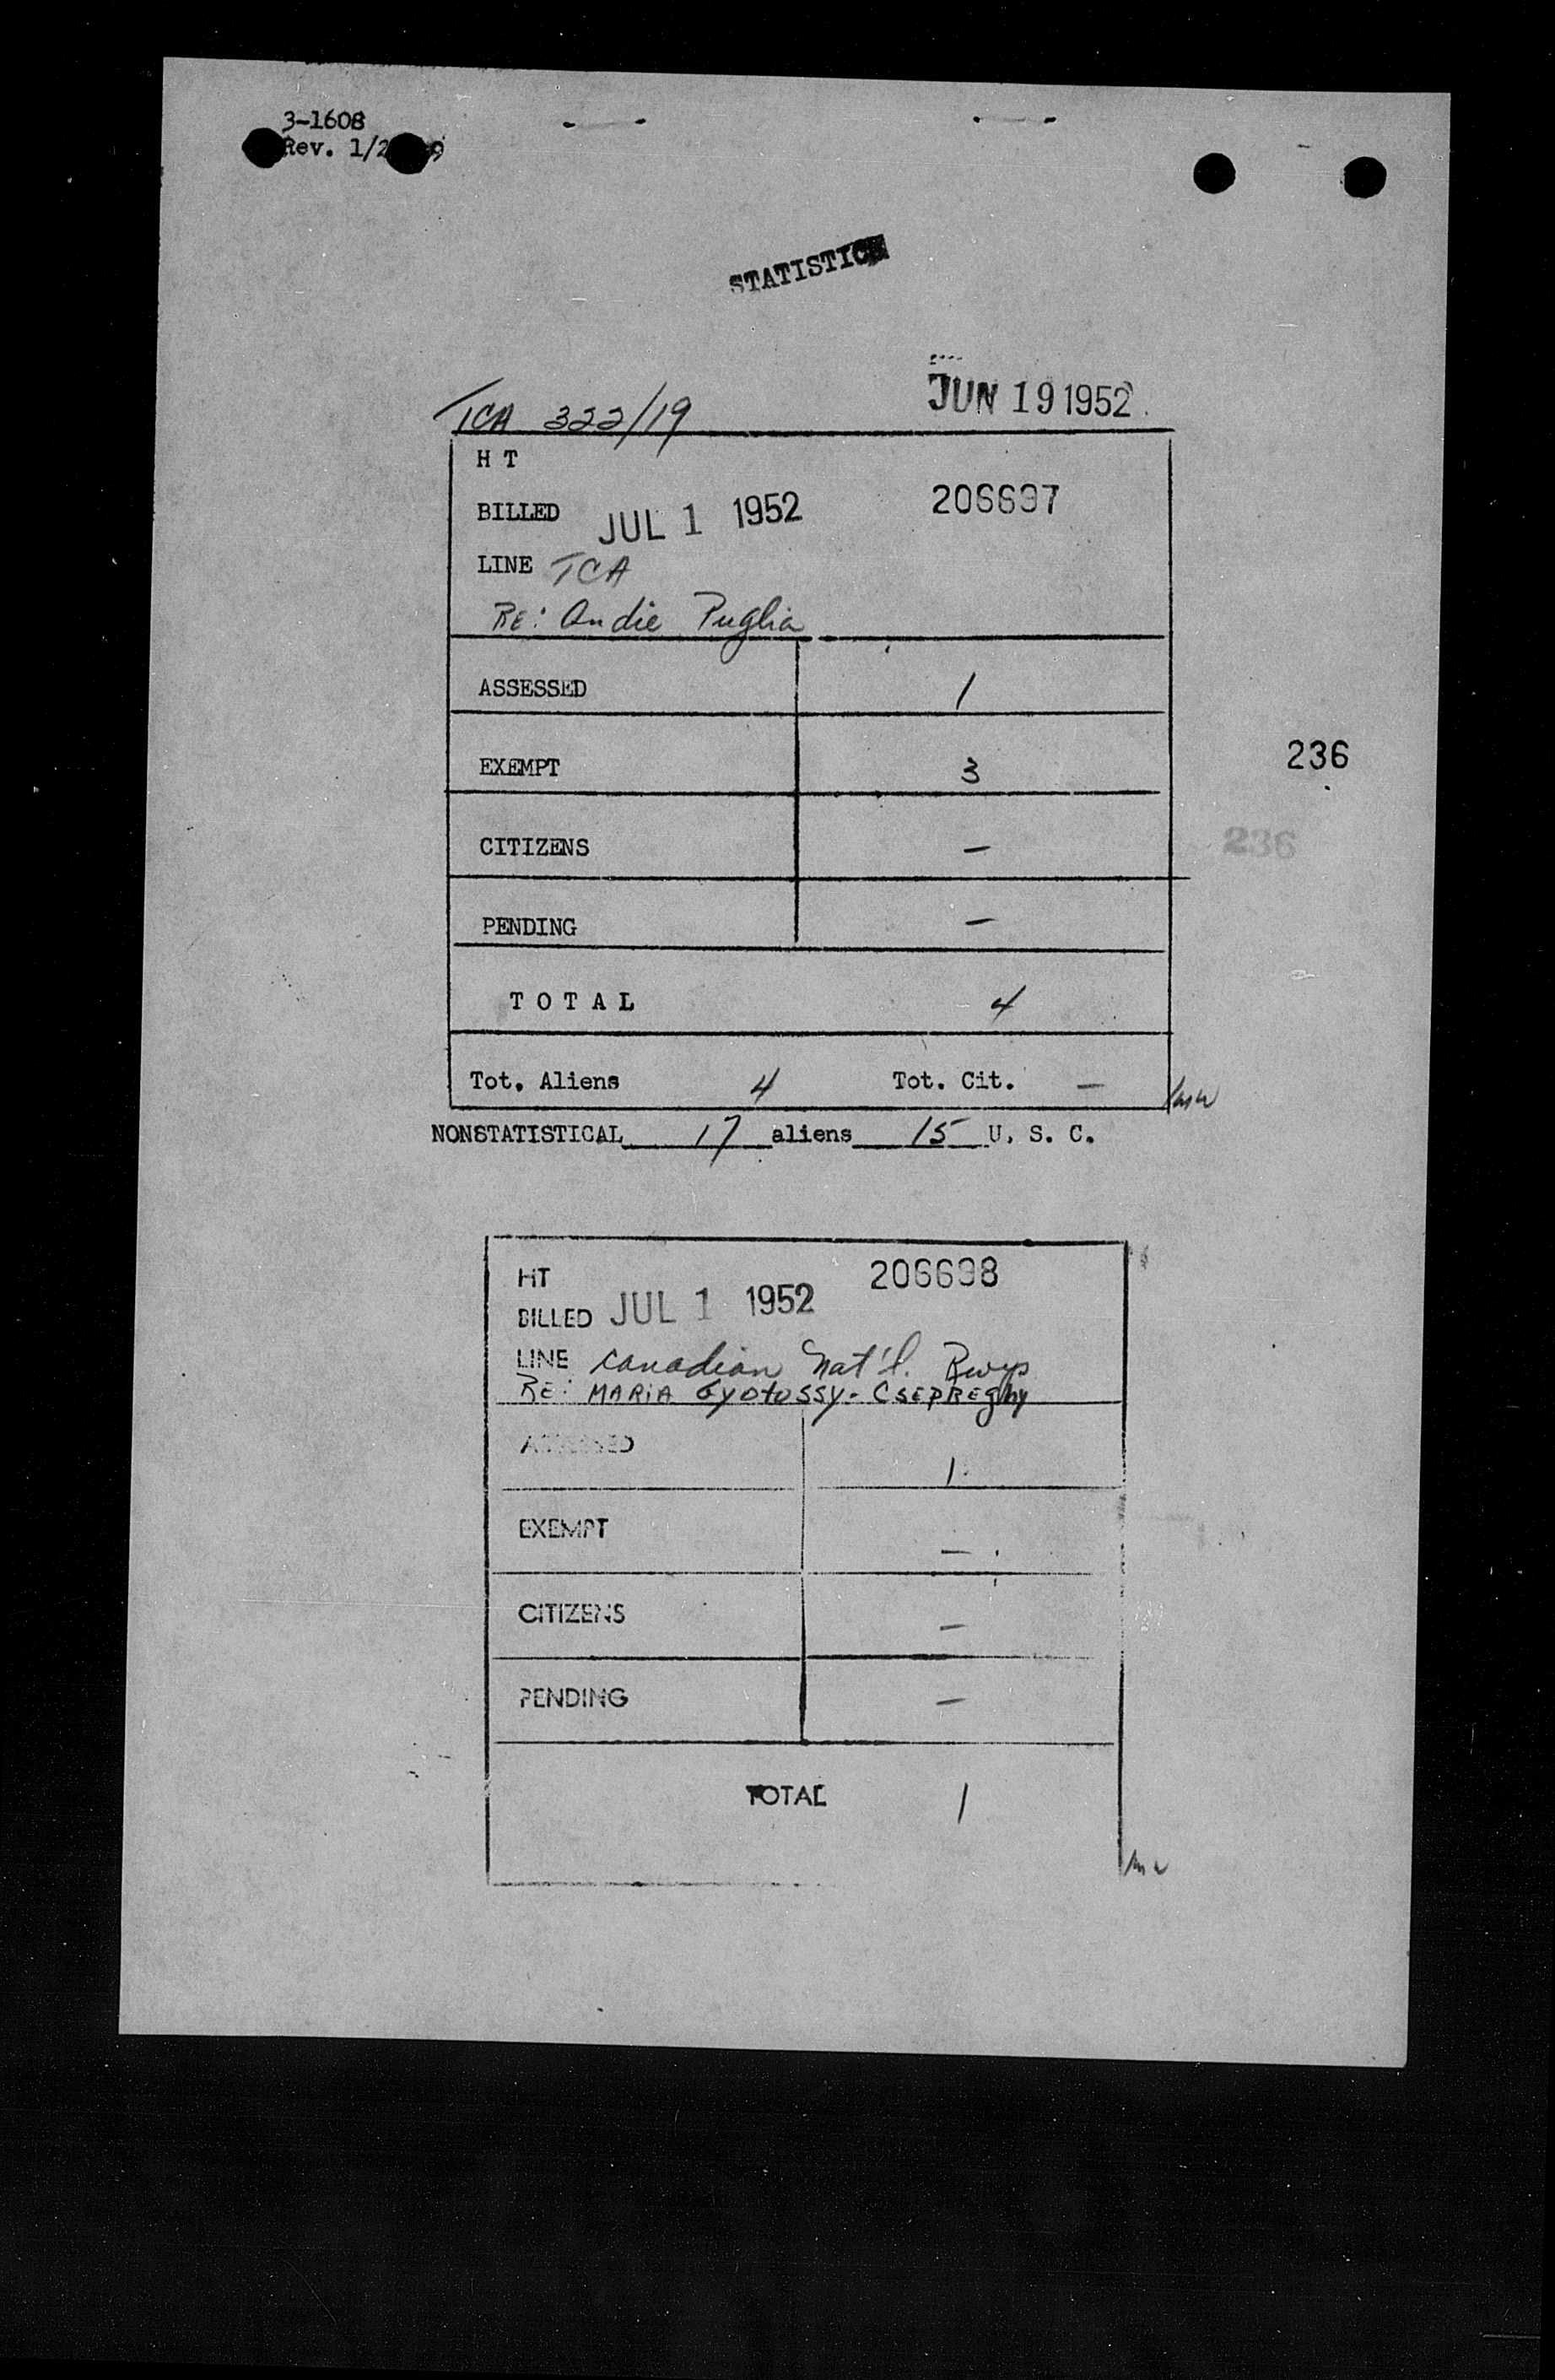 3-1608
Rev. 1/2
STATISTICS
JUN 19 1952
TCA 322/19
H T
BILLED JUL 1 1952 206697
LINE TCA
RE: Andie Puglia
ASSESSED 1
EXEMPT 3
236
CITIZENS –
236
PENDING –
T O T A L 4
Tot. Aliens 4 Tot. Cit. –
NONSTATISTICAL 17 aliens 15 U. S. C.
HT 206698
BILLED JUL 1 1952
LINE Canadian Nat'l. Rwys
RE: MARIA Gyotossy - Csepreghy
ASSESSED 1
EXEMPT –
CITIZENS –
PENDING –
TOTAL 1